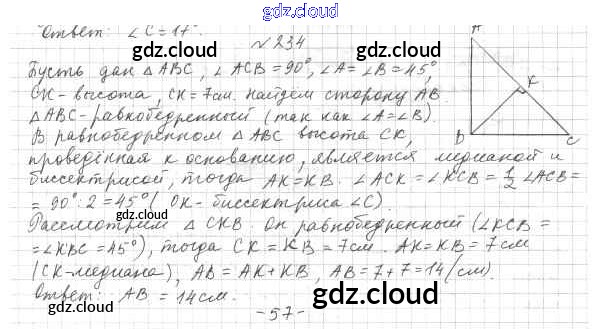 Ответ: ∠C = 17°.
gdz.cloud
№ 234
gdz.cloud
gdz.cloud
Пусть дан △ABC, ∠ACB = 90°, ∠A = ∠B = 45°,
CK - высота, CK = 7см. Найдем сторону AB.
△ABC - равнобедренный (так как ∠A = ∠B).
В равнобедренном △ABC высота CK,
проведённая к основанию, является медианой и
биссектрисой, тогда AK = KB. ∠ACK = ∠KCB = 1/2 ∠ACB =
= 90° : 2 = 45° ( CK - биссектриса ∠C).
Рассмотрим △CKB. Он равнобедренный (∠KCB =
= ∠KBC = 45°), тогда CK = KB = 7см. AK = KB = 7см
(CK - медиана), AB = AK + KB, AB = 7 + 7 = 14 (см).
Ответ: AB = 14см.
- 57 -
A
K
B
C
gdz.cloud
gdz.cloud
gdz.cloud
gdz.cloud
gdz.cloud